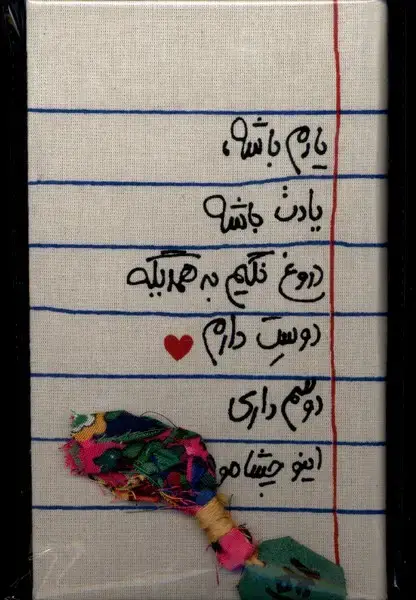 یادم باشه،
یادت باشه
دروغ نگیم به همدیگه
دوسِت دارم
دوسَم داری
اینو چشامو